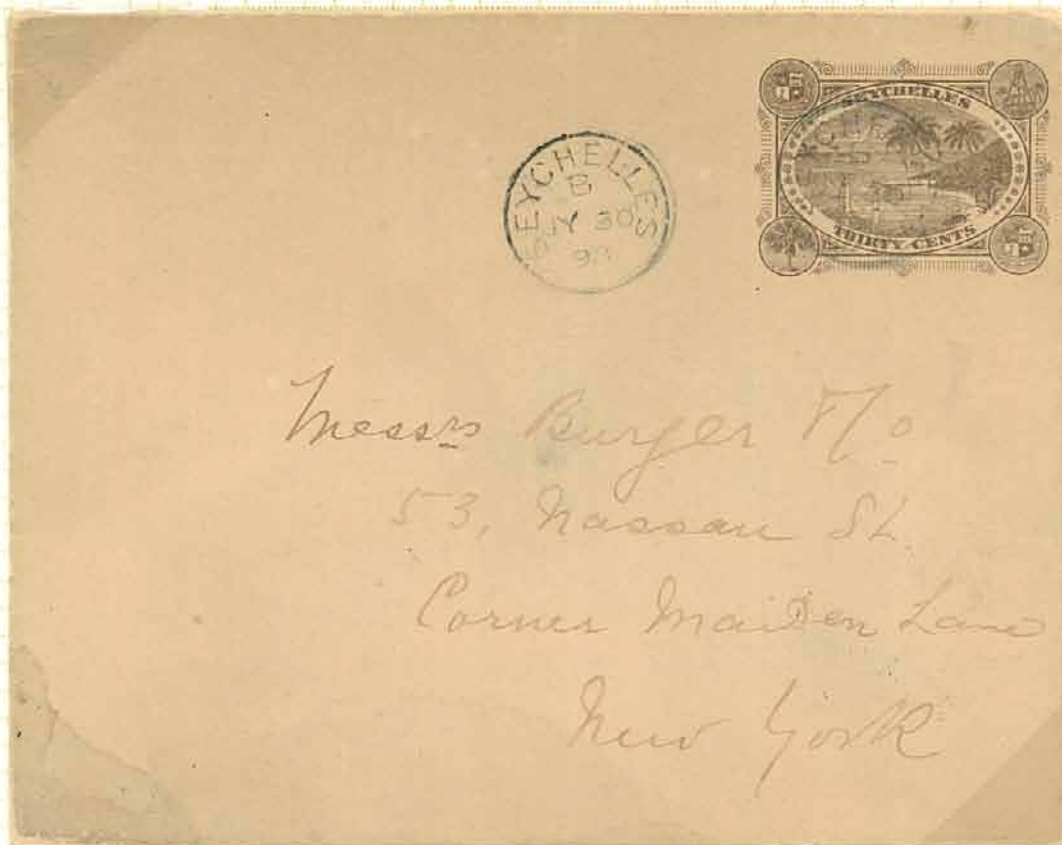 SEYCHELLES
THIRTY CENTS
SEYCHELLES
B
JY 30
Messrs Burger & Co
53, Nassau St.
Corner Maiden Lane
New York